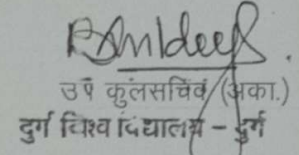 उप कुलसचिव (अका.)
दुर्ग विश्वविद्यालय - दुर्ग